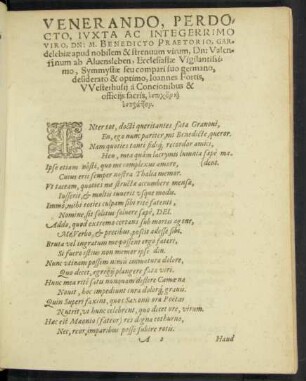 VENERANDO, PERDO-
CTO, IVXTA AC INTEGERRIMO
VIRO, DN: M. BENEDICTO PRAETORIO, GAR-
delebiæ apud nobilem & strenuum virum, Dn: Valen-
tinum ab Aluensleben, Ecclesiastæ Vigilantissi-
mo, Symmystæ seu compari suo germano,
desiderato & optimo, Ioannes Fortis,
VVesterhusij à Concionibus &
officijs sacris,
INter tot, docti queritantes fata Granoui,
En, ego num pariter, mi Benedicte, querar.
Nam quoties tanti fidiq; recordor amici,
Heu, mea quàm lacrymis lumina sæpè ma-
dent.
Ipse etiam nôsti, quo me complexus amore,
Cuius eris semper nostra Thalia memor.
Vt taceam, quoties na structa accumbere mensa,
Iusserit, & multis iuuerit vsq; modis.
Immò, mihi toties culpam sibi ritè fatenti,
Nomine sit solitus soluere sæpè, DEI.
Adde, quòd extremo certans sub mortis agone,
Me Verbo, & precibus potis adesse sibi.
Bruta vel ingratum me possent ergo fateri,
Si fuero istius non memor ipse
Nunc etenim passim nimio immotura dolore,
Quo decet, egregij plangere fata viri.
Hunc mea ritè fatu nunquam didicere Camœna
Nouit, hoc impediunt cura dolorq; grauis.
Quin Superi faxint, quos Saxonis ora Poëtas
Nutrit, va hunc celebrent, quo decet ore, virum.
Hæc est Mæonio (fateor) res digna cothurno,
Nec, reor, imparibus posse subire rotis.
A 2 Haud